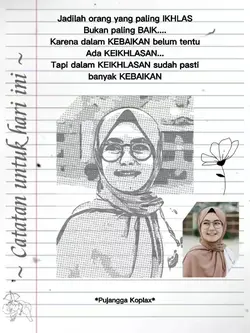 Jadilah orang yang paling IKHLAS
Bukan paling BAIK....
Karena dalam KEBAIKAN belum tentu
Ada KEIKHLASAN...
Tapi dalam KEIKHLASAN sudah pasti
banyak KEBAIKAN
~ Catatan untuk hari ini ~
*Pujangga Koplax*